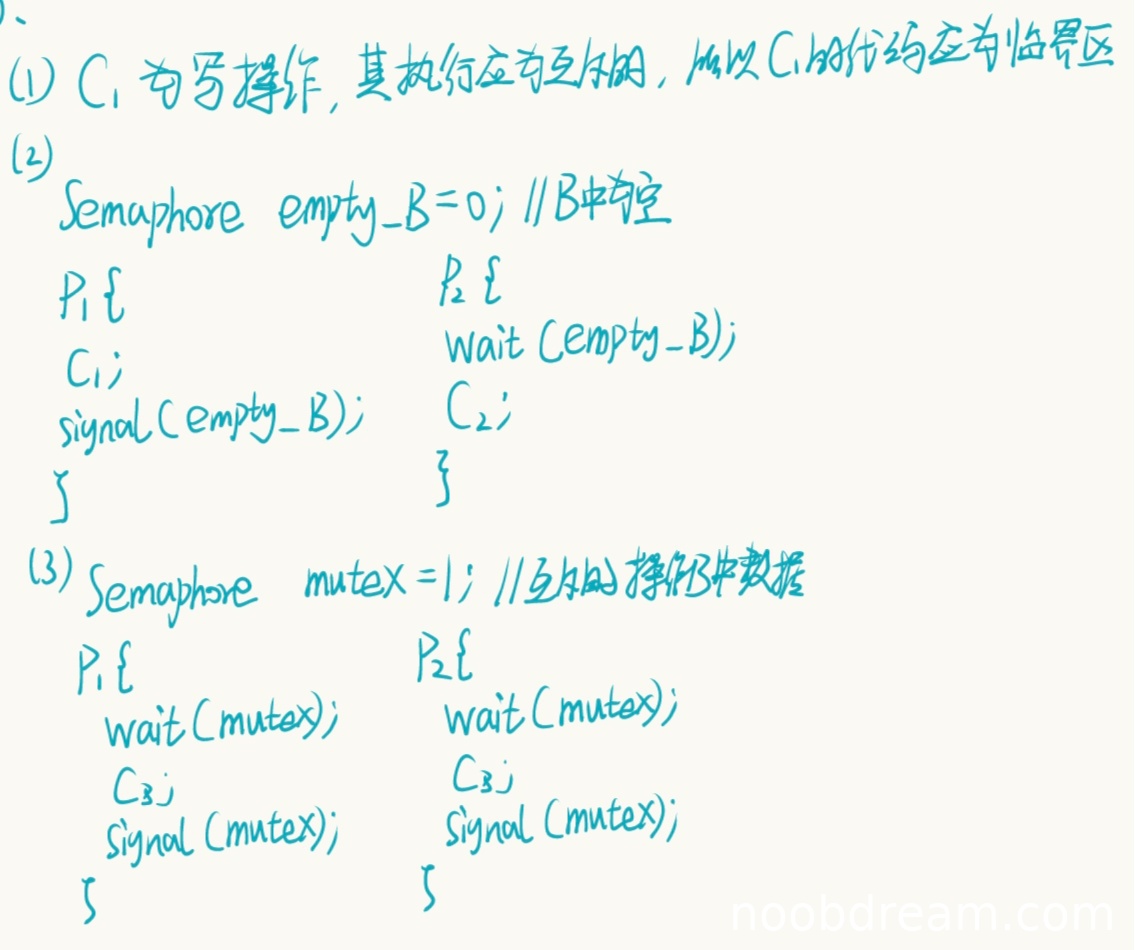 (1) C₁ 为写操作, 其执行应为互斥的, 所以C₁的代码应为临界区
(2)
Semaphore empty_B=0; //B中为空
P₁{ P₂{
C₁; wait(empty_B);
signal(empty_B); C₂;
} }
(3) Semaphore mutex=1; //互斥的操作B中数据
P₁{ P₂{
wait(mutex); wait(mutex);
C₃; C₃;
signal(mutex); signal(mutex);
} }
noobdream.com